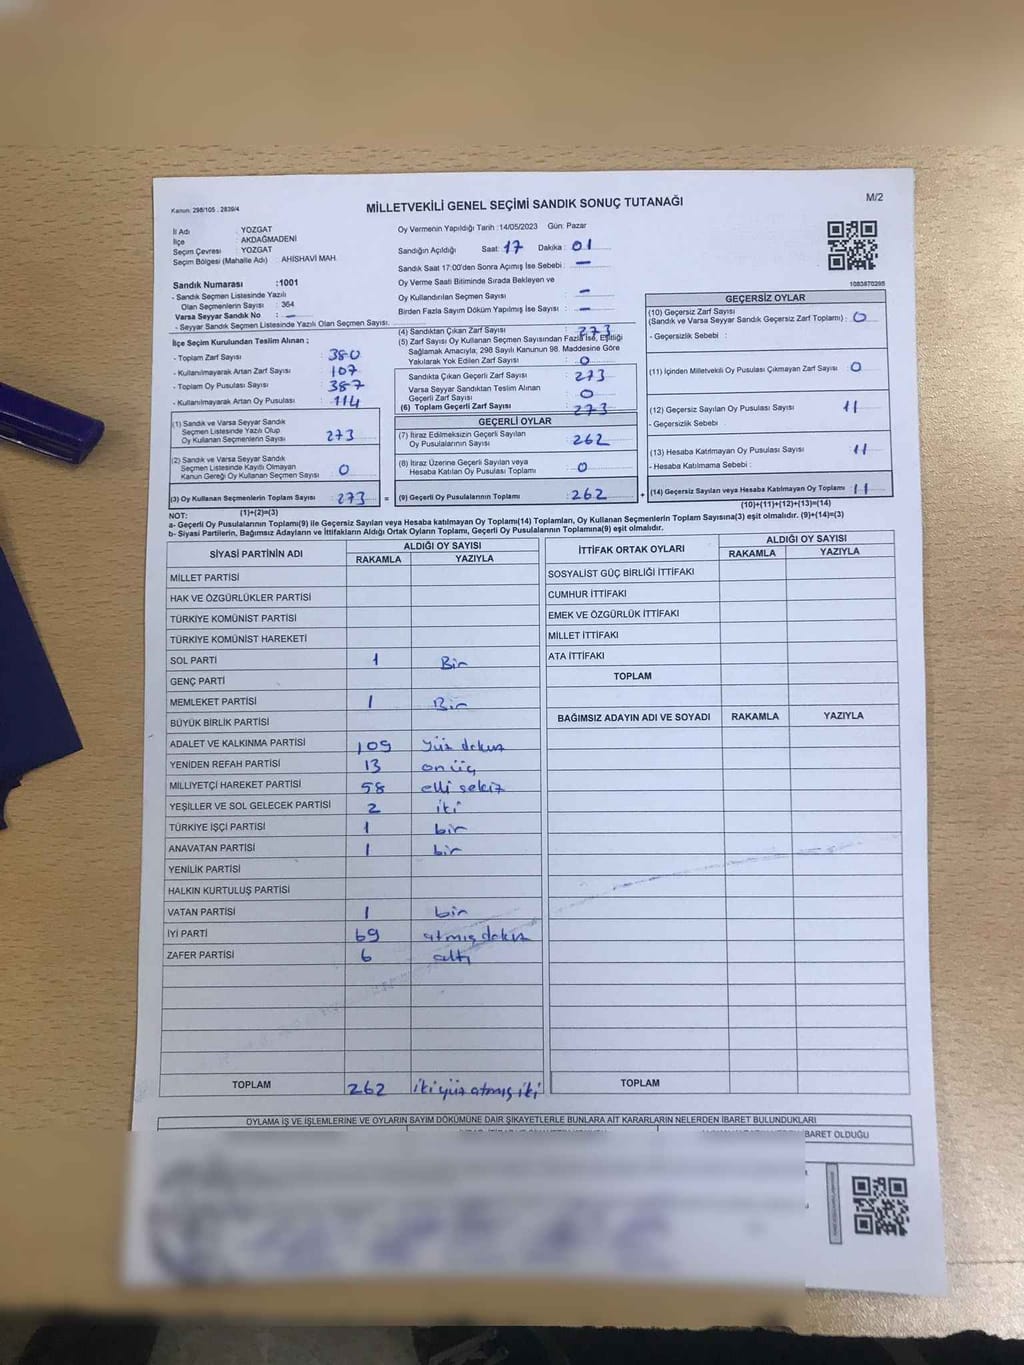 Kanun: 298/105 , 2839/4
MİLLETVEKİLİ GENEL SEÇİMİ SANDIK SONUÇ TUTANAĞI
M/2
İl Adı : YOZGAT
İlçe : AKDAĞMADENİ
Seçim Çevresi : YOZGAT
Seçim Bölgesi (Mahalle Adı) : AHİSHAVİ MAH.
Oy Vermenin Yapıldığı Tarih :14/05/2023 Gün: Pazar
Sandığın Açıldığı Saat: 17 Dakika: 01
Sandık Saat 17:00'den Sonra Açımış İse Sebebi : —
Oy Verme Saati Bitiminde Sırada Bekleyen ve
Oy Kullandırılan Seçmen Sayısı : —
Birden Fazla Sayım Döküm Yapılmış İse Sayısı : —
1083870295
Sandık Numarası :1001
- Sandık Seçmen Listesinde Yazılı
Olan Seçmenlerin Sayısı : 364
Varsa Seyyar Sandık No : —
- Seyyar Sandık Seçmen Listesinde Yazılı Olan Seçmen Sayısı:
İlçe Seçim Kurulundan Teslim Alınan ;
- Toplam Zarf Sayısı : 380
- Kullanılmayarak Artan Zarf Sayısı : 107
- Toplam Oy Pusulası Sayısı : 387
- Kullanılmayarak Artan Oy Pusulası : 114
(1) Sandık ve Varsa Seyyar Sandık
Seçmen Listesinde Yazılı Olup
Oy Kullanan Seçmenlerin Sayısı : 273
(2) Sandık ve Varsa Seyyar Sandık
Seçmen Listesinde Kayıtlı Olmayan
Kanun Gereği Oy Kullanan Seçmen Sayısı : 0
(3) Oy Kullanan Seçmenlerin Toplam Sayısı : 273 =
(1)+(2)=(3)
(4) Sandıktan Çıkan Zarf Sayısı : 273
(5) Zarf Sayısı Oy Kullanan Seçmen Sayısından Fazla İse, Eşitliği
Sağlamak Amacıyla; 298 Sayılı Kanunun 98. Maddesine Göre
Yakılarak Yok Edilen Zarf Sayısı : 0
Sandıkta Çıkan Geçerli Zarf Sayısı : 273
Varsa Seyyar Sandıktan Teslim Alınan
Geçerli Zarf Sayısı : 0
(6) Toplam Geçerli Zarf Sayısı : 273
GEÇERLİ OYLAR
(7) İtiraz Edilmeksizin Geçerli Sayılan
Oy Pusulalarının Sayısı : 262
(8) İtiraz Üzerine Geçerli Sayılan veya
Hesaba Katılan Oy Pusulası Toplamı : 0
(9) Geçerli Oy Pusulalarının Toplamı : 262 +
GEÇERSİZ OYLAR
(10) Geçersiz Zarf Sayısı
(Sandık ve Varsa Seyyar Sandık Geçersiz Zarf Toplamı) : 0
- Geçersizlik Sebebi :
(11) İçinden Milletvekili Oy Pusulası Çıkmayan Zarf Sayısı : 0
(12) Geçersiz Sayılan Oy Pusulası Sayısı : 11
- Geçersizlik Sebebi :
(13) Hesaba Katılmayan Oy Pusulası Sayısı : 11
- Hesaba Katılmama Sebebi :
(14) Geçersiz Sayılan veya Hesaba Katılmayan Oy Toplamı : 11
(10)+(11)+(12)+(13)=(14)
NOT:
a- Geçerli Oy Pusulalarının Toplamı(9) ile Geçersiz Sayılan veya Hesaba katılmayan Oy Toplamı(14) Toplamları, Oy Kullanan Seçmenlerin Toplam Sayısına(3) eşit olmalıdır. (9)+(14)=(3)
b- Siyasi Partilerin, Bağımsız Adayların ve İttifakların Aldığı Ortak Oyların Toplamı, Geçerli Oy Pusulalarının Toplamına(9) eşit olmalıdır.
SİYASİ PARTİNİN ADI ALDIĞI OY SAYISI
RAKAMLA YAZIYLA
MİLLET PARTİSİ
HAK VE ÖZGÜRLÜKLER PARTİSİ
TÜRKİYE KOMÜNİST PARTİSİ
TÜRKİYE KOMÜNİST HAREKETİ
SOL PARTİ 1 Bir
GENÇ PARTİ
MEMLEKET PARTİSİ 1 Bir
BÜYÜK BİRLİK PARTİSİ
ADALET VE KALKINMA PARTİSİ 109 Yüz dokuz
YENİDEN REFAH PARTİSİ 13 on üç
MİLLİYETÇİ HAREKET PARTİSİ 58 elli sekiz
YEŞİLLER VE SOL GELECEK PARTİSİ 2 iki
TÜRKİYE İŞÇİ PARTİSİ 1 bir
ANAVATAN PARTİSİ 1 bir
YENİLİK PARTİSİ
HALKIN KURTULUŞ PARTİSİ
VATAN PARTİSİ 1 bir
İYİ PARTİ 69 atmış dokuz
ZAFER PARTİSİ 6 altı
TOPLAM 262 iki yüz atmış iki
İTTİFAK ORTAK OYLARI ALDIĞI OY SAYISI
RAKAMLA YAZIYLA
SOSYALİST GÜÇ BİRLİĞİ İTTİFAKI
CUMHUR İTTİFAKI
EMEK VE ÖZGÜRLÜK İTTİFAKI
MİLLET İTTİFAKI
ATA İTTİFAKI
TOPLAM
BAĞIMSIZ ADAYIN ADI VE SOYADI RAKAMLA YAZIYLA
TOPLAM
OYLAMA İŞ VE İŞLEMLERİNE VE OYLARIN SAYIM DÖKÜMÜNE DAİR ŞİKAYETLERLE BUNLARA AİT KARARLARIN NELERDEN İBARET BULUNDUKLARI
BARET OLDUĞU